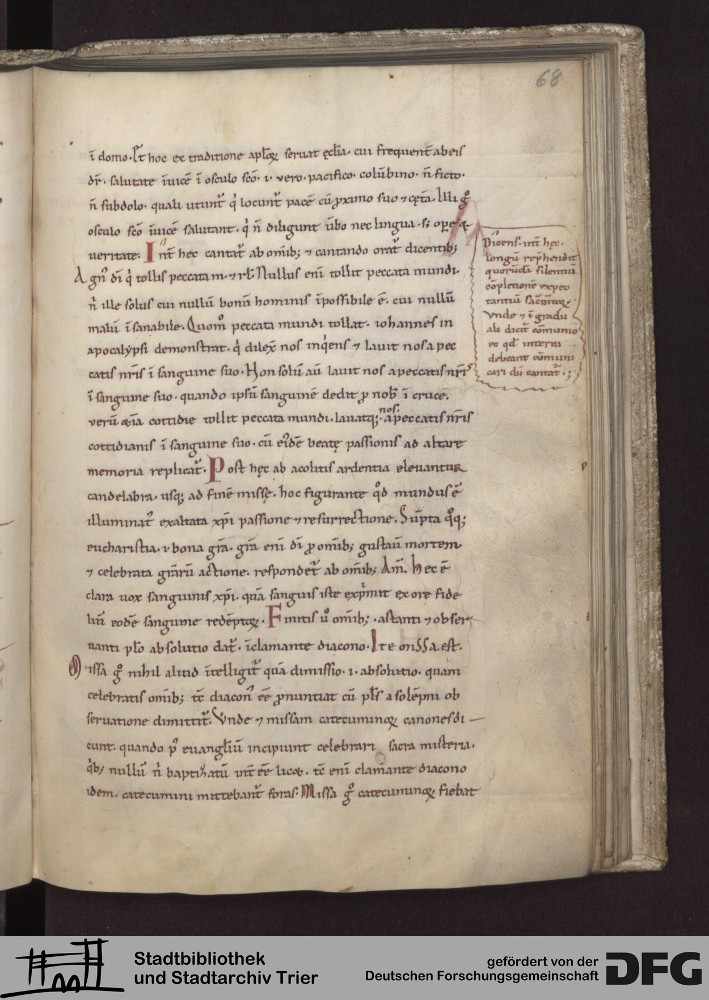 68
ī domo. Et hoc ex traditione aplōꝝ seruat ęclīa. cui frequent̄ abeis
dr̄. salutate īuicē ī osculo scō. ɩ. vero. pacifico. colūbino. n̄ ficto.
n̄ subdolo. quali utunt̄ q̇ locunt̄ pacē cū ꝓximo suo ⁊ cęta. Illi ḡ
osculo scō īuicē salutant. q̇ n̄ diligunt ūbo nec lingua. sꝫ opeꝛe ⁊
veritate. Int̄ hec cantat̄ ab om̄ibꝫ ⁊ cantando orat̄ dicentibꝫ
Agn̄ dī q̇ tollis peccata m. ⁊ rl̄. Nullus enī tollit peccata mundi.
n̄ ille solus cui nullū bonū hominis īpossibile ē. cui nullū
malū īsanabile. Quom̄ peccata mundi tollat. iohannes in
apocalypsi demonstrat. q̇ dilex̄ nos inq̇ens ⁊ lauit nos a pec
catis nr̄is ī sanguine suo. Non solū aū lauit nos a peccatis nr̄is
ī sanguine suo. quando ipsū sanguinē dedit ꝓ nob̄ ī cruce.
verū &ā cottidie tollit peccata mundi. lauatqꝫ nos a peccatis nr̄is
cottidianis ī sanguine suo. cū ei'dē beatę passionis ad altare
memoria replicat̄. Post hęc ab acolitis ardentia eleuantur
candelabra. usqꝫ ad finē missę. hoc figurante qd̄ mundus ē
illuminat' exaltata xp̄i passione ⁊ resurrectione. Sūpta q̇qꝫ
eucharistia. ɩ bona grā. grā enī dī ꝓ omibꝫ gustauī mortem
⁊ celebrata grārū actione. respondet̄ ab om̄ibꝫ Am̄. hec ē
clara uox sanguinis xp̄i. quā sanguis iste exp̄mit ex ore fide
liū eodē sanguine redēptoꝝ. Finitis ū om̄ibꝫ. astanti ⁊ obser
uanti plo absolutio dat̄. īclamante diacono. Ite missa est.
Missa ḡ nihil aliud ītelligit̄ quā dimissio. ɩ. absolutio. quam
celebratis omibꝫ tc̄ diacon' eē ꝓnuntiat cū pls̄ a solēpni ob
seruatione dimittit̄. Vnde ⁊ missam catecuminoꝝ canones di
cunt. quando p̄ euangliū incipiunt celebrari sacra misteria.
q̇bꝫ nullū n̄ baptizatū int̄eē lic&. tc̄ enī clamante diacono
idem. catecumini mittebant̄ foras. Missa ḡ catecuminoꝝ fiebat
Dicens. int̄ hęc.
longū rep̄hendit
quorūdā silentiū
cōpletionē expec
tantiū sac̄m̄tioꝝ.
Vnde ⁊ ī gradu
ali dicit̄ cōmunio
eo qd̄ interim
debeant cōmuni
cari dū cantat̄.
Stadtbibliothek
und Stadtarchiv Trier
gefördert von der
Deutschen Forschungsgemeinschaft
DFG